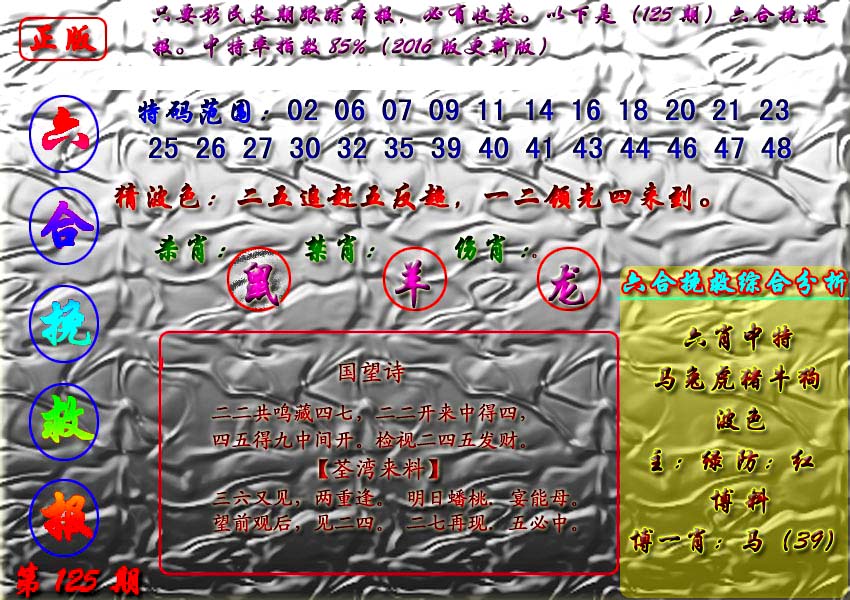 只要彩民长期跟踪本报，必有收获。以下是（125期）六合挽救
报。中特率指数85%（2016版更新版）
正版
六
合
挽
救
报
第125期
特码范围：02 06 07 09 11 14 16 18 20 21 23
25 26 27 30 32 35 39 40 41 43 44 46 47 48
猜波色：二五追赶五反超，一二领先四来到。
杀肖：鼠 禁肖：羊 伤肖：龙
国望诗
二二共鸣藏四七，二二开来中得四，
四五得九中间开。检视二四五发财。
【荃湾来料】
三六又见，两重逢。 明日蟠桃．宴能母。
望前观后，见二四。 二七再现．五必中。
六合挽救综合分析
六肖中特
马兔虎猪牛狗
波色
主：绿防：红
博料
博一肖：马（39）